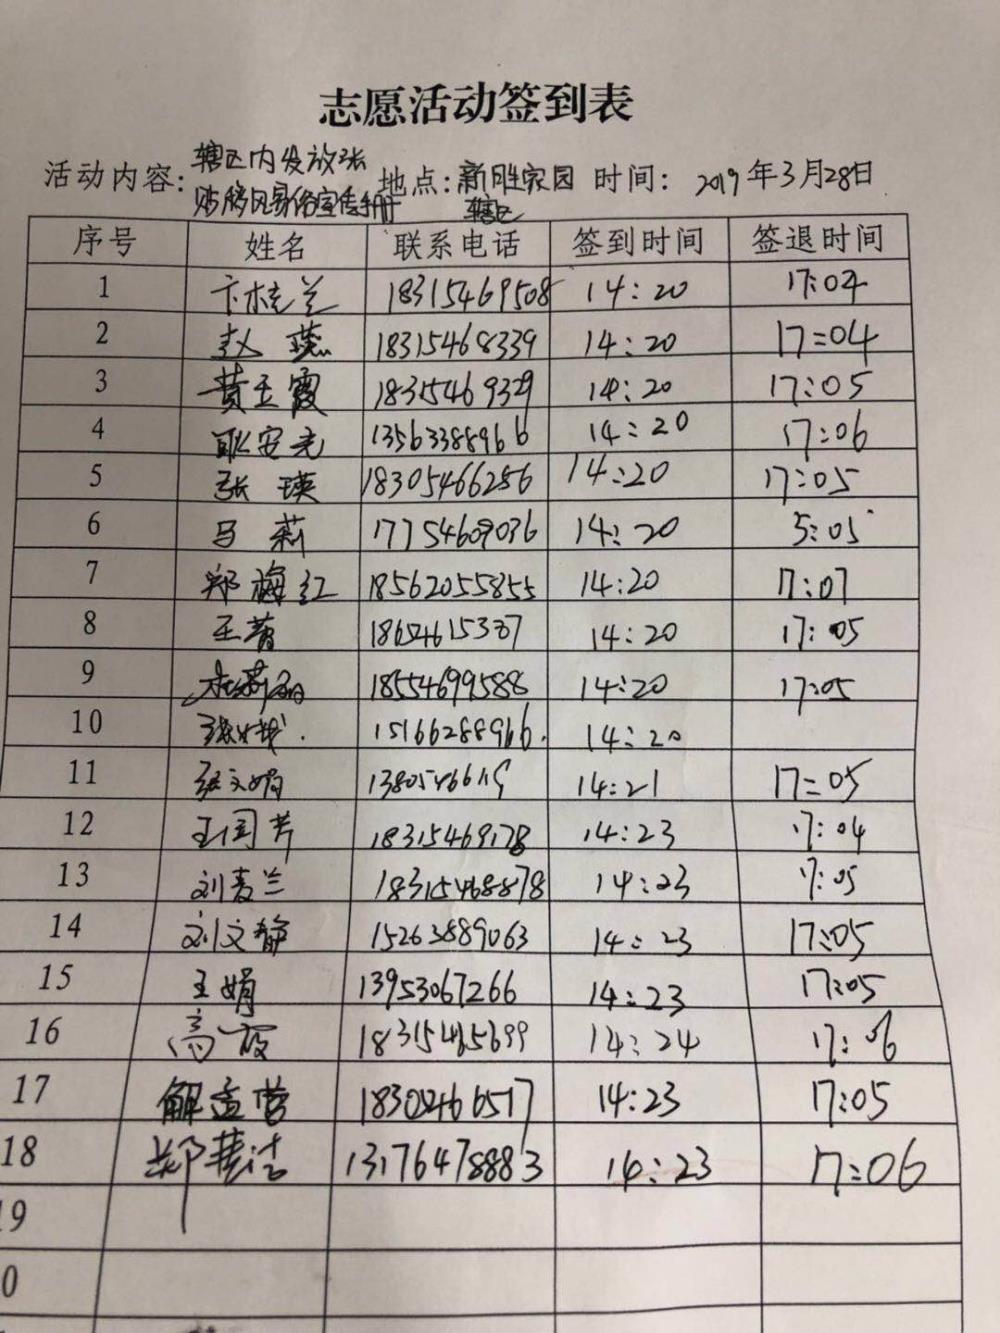 志愿活动签到表
活动内容: 辖区内发放张 地点: 新胜家园 时间: 2019年3月28日
贴移风易俗宣传手册 辖区
序号 姓名 联系电话 签到时间 签退时间
1 卞桂兰 18315469508 14:20 17:04
2 赵 18315468339 14:20 17:04
3 黄玉霞 18315469329 14:20 17:05
4 耿安 13563388966 14:20 17:06
5 张瑛 18305466286 14:20 17:05
6 马莉 17754609036 14:20 5:05
7 郑梅红 18562055855 14:20 17:07
8 王 14:20 17:05
9 18554699588 14:20 17:05
10 15166288966. 14:20
11 张文娟 14:21 17:05
12 王国芳 18315469178 14:23 17:04
13 刘春兰 18315468878 14:23 17:05
14 刘文静 15263889063 14:23 17:05
15 王娟 13953067266 14:23 17:05
16 高霞 18315465699 14:24 17:06
17 解孟营 18305466517 14:23 17:05
18 郑 洁 13176478883 14:23 17:06
19
0